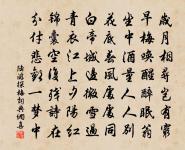 歲月相尋豈有窮
早梅喚醒醉眠翁
坐中酒量人人別
花底春風處處同
白帝城邊微雪過
青衣江上夕陽紅
錦囊空復殘詩在
分付悲歡一夢中
陸游探梅詞典網